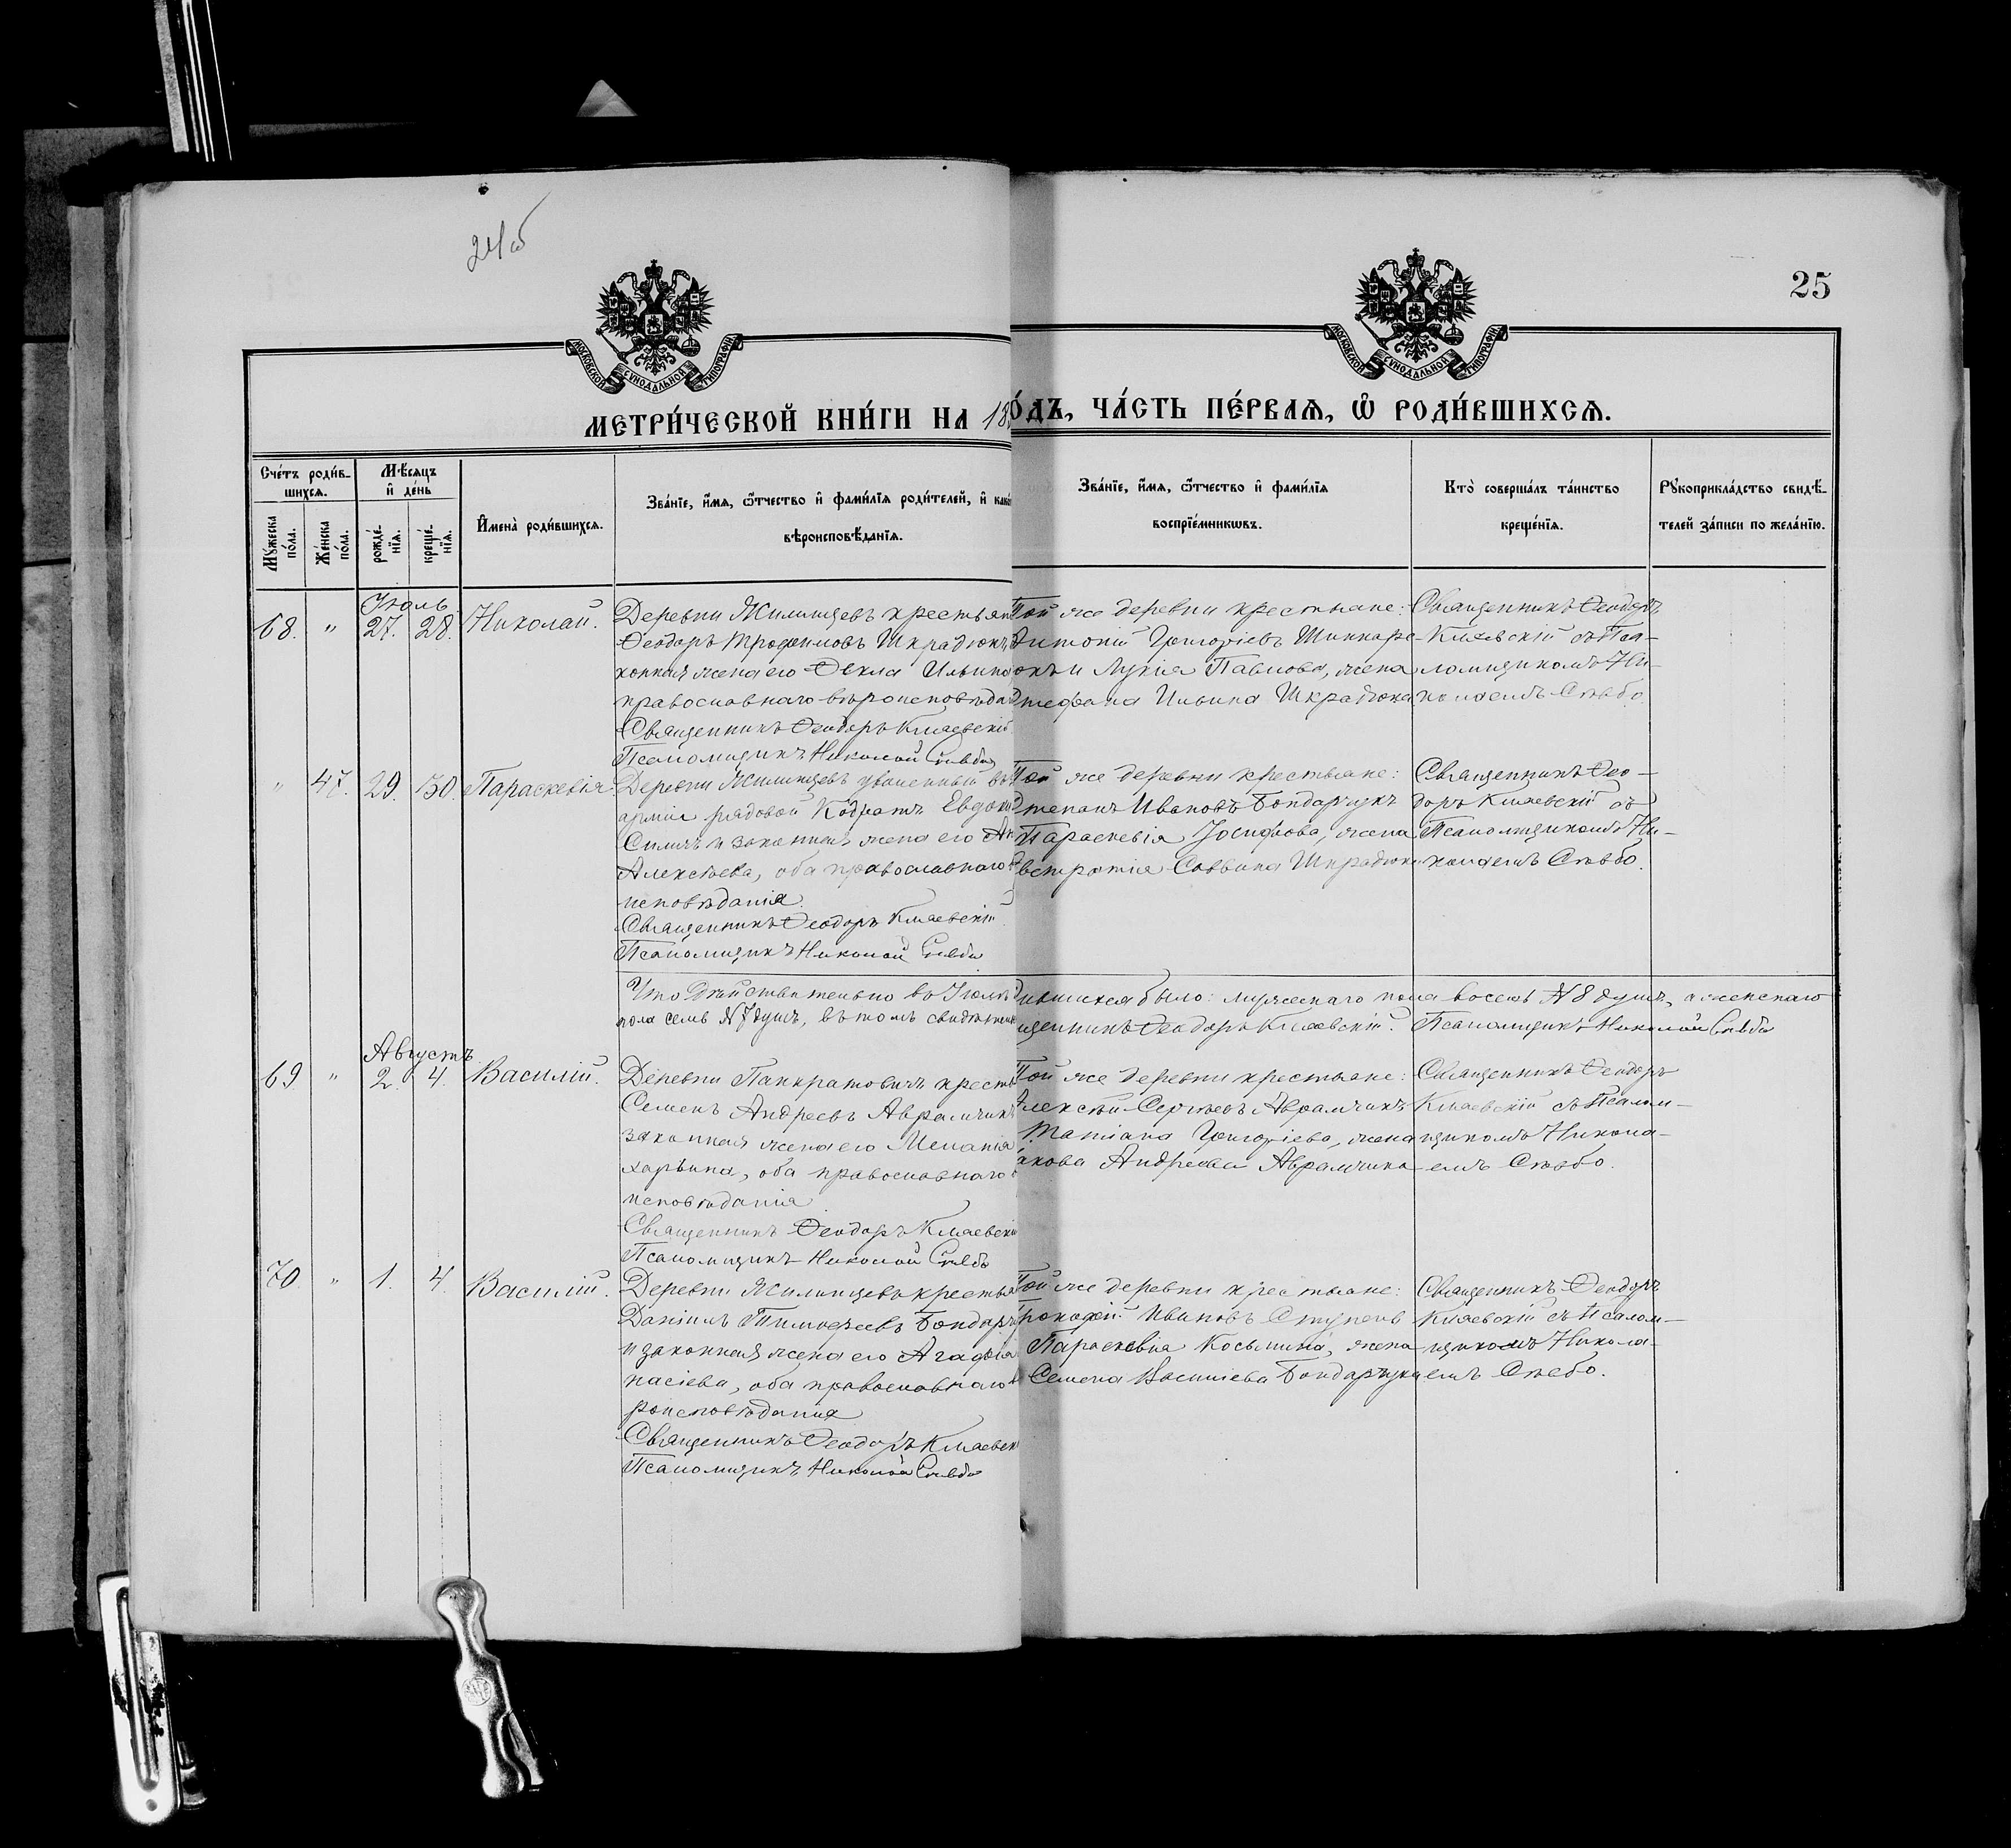 24об
25
МОСКОВСКОЙ СѴНОДАЛЬНОЙ ТИПОГРАФІИ
МОСКОВСКОЙ СѴНОДАЛЬНОЙ ТИПОГРАФІИ
МЕТРИ́ЧЕСКОЙ КНИ́ГИ НА 18
О́ДЪ, ЧА́СТЬ ПЕ́РВАѦ, Ѽ РОДИ́ВШИХСѦ.
Сче́тъ роди́в-
шихсѧ.
Мꙋ́жеска по́ла.
Же́нска по́ла.
Мѣ́сѧцъ
и҆ де́нь
рожде́-
нїѧ.
креще́-
нїѧ.
И҆мена̀ роди́вшихсѧ.
Зва́нїе, и҆́мѧ, ѻ҆́тчество и҆ фами́лїѧ роди́телей, и҆ како
вѣроисповѣ́данїѧ.
Зва́нїе, и҆́мѧ, ѻ҆́тчество и҆ фами́лїѧ
воспрїе́мникѡвъ.
Кто̀ соверша́лъ та́инство
креще́нїѧ.
Рꙋкоприкла́дство свидѣ́-
телей за́писи по жела́нїю.
Іюль
68. " 27. 28. Николай.
Деревни Жилинцевъ крестьян
Ѳеодоръ Трофимовъ Шкрадюкъ
конная жена его Ѳекла Ильина
православнаго вѣроисповѣдан
Священникъ Ѳеодоръ Кляевскій
Псаломщикъ Николай Стебо
Той же деревни крестьяне:
Антоній Григоріевъ Шинкаре-
окъ и Лукія Павлова, жена
Стефана Ильина Шкрадюка
Священникъ Ѳеодоръ
Кляевскій съ Пса-
ломщикомъ Ни-
колаемъ Стебо.
" 47. 29. 30. Параскевія
Деревни Жилинцевъ уволенный въ
армии рядовой Кодратъ Евдоки
и законная жена его Ан
Алексѣева, оба православнаго в
исповѣданія.
Священникъ Ѳеодоръ Кляевскій
Псаломщикъ Николай Стебо
Той же деревни крестьяне:
Степанъ Ивановъ Бондарчукъ
Параскевія Іосифова, жена
Евстратія Саввина Шкрадюка
Священникъ Ѳео-
доръ Кляевскій съ
Псаломщикомъ Ни-
колаемъ Стебо.
Что дѣйствительно въ Іюлѣ
дившихся было: мужескаго пола восемь №8 душъ, а женскаго
пола семь №7 душъ, въ томъ свидѣтел
щенникъ Ѳеодоръ Кляевскій. Псаломщикъ Николай Стебо
Августъ
69 " 2. 4. Василій.
Деревни Панкратовичъ кресть
Семенъ Андреевъ Аврамчикъ
законная жена его Меланія
харьина, оба православнаго в
исповѣданія
Священникъ Ѳеодоръ Кляевскі
Псаломщикъ Николай Стебо
Той же деревни крестьяне:
Алексѣй Сергѣевъ Аврамчикъ
Татіана Григоріева, жена
Якова Андреева Аврамчика
Священникъ Ѳеодоръ
Кляевскій съ Псалом-
щикомъ Никола-
емъ Стебо.
70. " 1. 4. Василій.
Деревни Жилинцевъ крестья
Даніилъ Тимоѳеевъ Бондарч
и законная жена его Агафія
насіева, оба православнаго в
роисповѣданія
Священникъ Ѳеодоръ Кляевск
Псаломщикъ Николай Стебо
Той же деревни крестьяне:
Прокофій Ивановъ Ступень
Параскевія Косьмина, жена
Семена Василіева Бондарчука
Священникъ Ѳеодоръ
Кляевскій съ Псалом-
щикомъ Никола-
емъ Стебо.